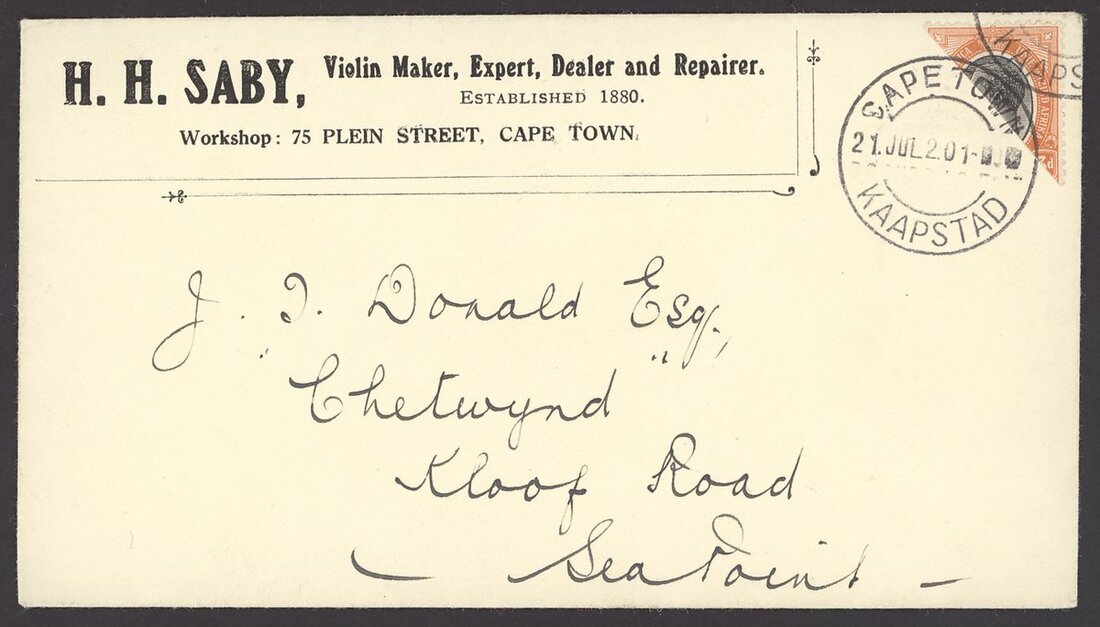 H. H. SABY, Violin Maker, Expert, Dealer and Repairer.
ESTABLISHED 1880.
Workshop: 75 PLEIN STREET, CAPE TOWN.
KAAPS
CAPE TOWN
21.JUL2.01-
KAAPSTAD
J. J. Donald Esq.,
"Chetwynd"
Kloof Road
Sea Point